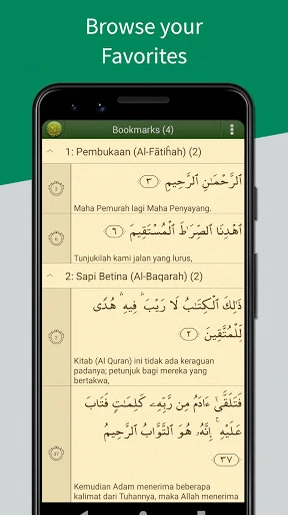 Browse your
Favorites
Bookmarks (4)
1: Pembukaan (Al-Fātiĥah) (2)
ٱلرَّحْمَـٰنِ ٱلرَّحِيمِ ٣
3
Maha Pemurah lagi Maha Penyayang.
ٱهْدِنَا ٱلصِّرَٰطَ ٱلْمُسْتَقِيمَ ٦
6
Tunjukilah kami jalan yang lurus,
2: Sapi Betina (Al-Baqarah) (2)
ذَٰلِكَ ٱلْكِتَـٰبُ لَا رَيْبَ ۛ فِيهِ ۛ هُدًى
لِّلْمُتَّقِينَ ٢
2
Kitab (Al Quran) ini tidak ada keraguan
padanya; petunjuk bagi mereka yang
bertakwa,
فَتَلَقَّىٰٓ ءَادَمُ مِن رَّبِّهِۦ كَلِمَـٰتٍ فَتَابَ
عَلَيْهِ ۚ إِنَّهُۥ هُوَ ٱلتَّوَّابُ ٱلرَّحِيمُ
٣٧
37
Kemudian Adam menerima beberapa
kalimat dari Tuhannya, maka Allah menerima